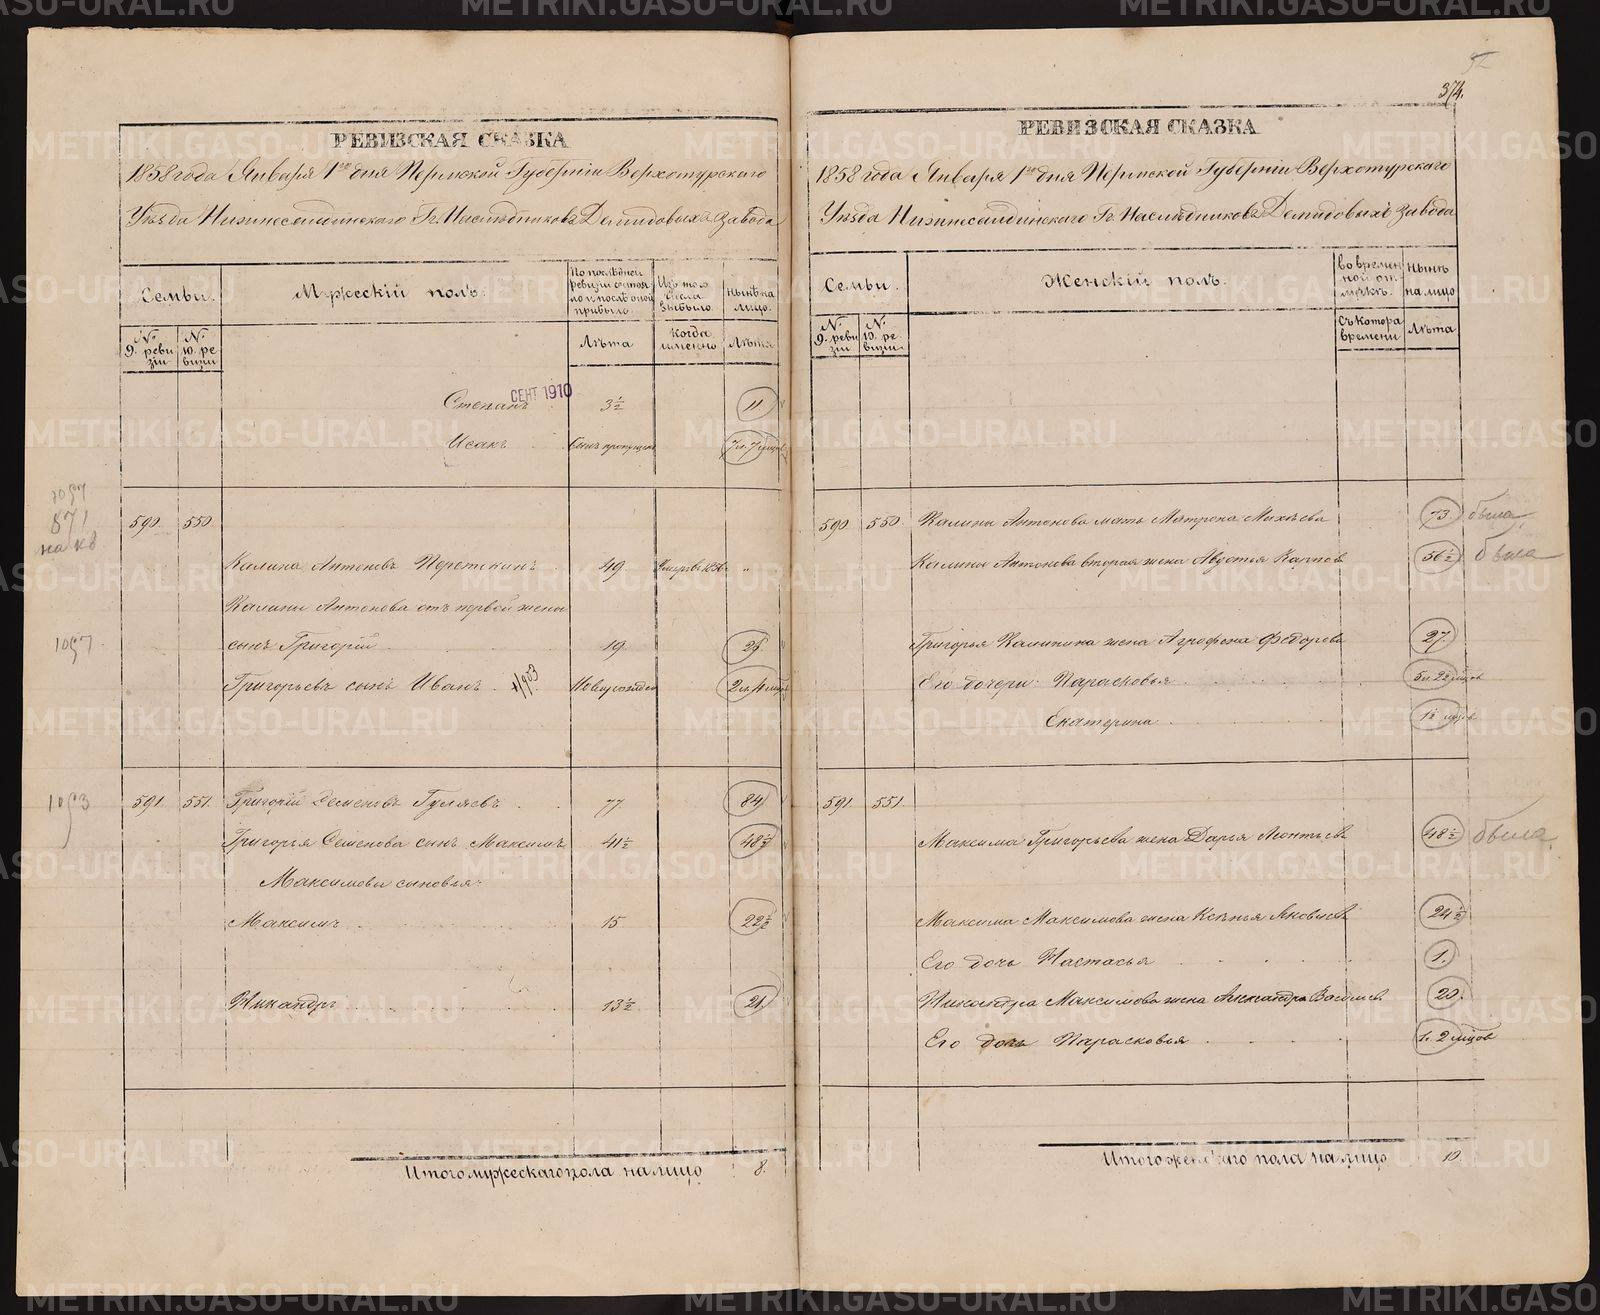 РЕВИЗСКАЯ СКАЗКА
1858 года Января 1го дня Пермской Губернiи Верхотурскаго
Уѣзда Нижнесалдинскаго Гг. Наслѣдниковъ Демидовыхъ завода
Семьи.
Мужескiй полъ.
По послѣдней ревизiи состояло и послѣ оной прибыло.
Изъ того числа выбыло.
Нынѣ на лицо.
№ 9. ревизiи
№ 10. ревизiи
Лѣта
Когда именно
Лѣта
СЕНТ 1910
Степанъ 3½ 11
Исакъ Сынъ пропущенъ
1097
571
590 550
Калина Антоновъ Перетякинъ 49 Умеръ въ 1856 "
Калины Антонова отъ первой жены
1097 сынъ Григорiй 19 26
Григорьевъ сынъ Иванъ 1/903 Новорожденъ
1093 591 551. Григорiй Семеновъ Гуляевъ 77 84
Григорья Семенова сынъ Максимъ 41½ 48½
Максимовы сыновья:
Максимъ 15 22½
Никандръ 13½ 21
Итого мужескаго пола на лицо 8.
374.
РЕВИЗСКАЯ СКАЗКА
1858 года Января 1го дня Пермской Губернiи Верхотурскаго
Уѣзда Нижнесалдинскаго Гг. Наслѣдниковъ Демидовыхъ завода
Семьи.
Женскiй полъ.
во временной отлучкѣ.
Нынѣ на лицо
№ 9. ревизiи
№ 10. ревизiи
Съ котора времени
Лѣта
590 550 Калины Антонова мать Матрона Михѣева 73 была
Калины Антонова вторая жена Авдотья Карпов 56½ была
Григорья Калинина жена Агрофена Федорова 27
Его дочери: Парасковья
Екатерина
591 551
Максима Григорьева жена Дарья Леонтьев 48½ была
Максима Максимова жена Ксенья Яковлев 24½
Его дочь Настасья 1.
Никандра Максимова жена Александра Васильев 20.
Его дочь Парасковья
Итого женскаго пола на лицо 10
METRIKI.GASO-URAL.RU